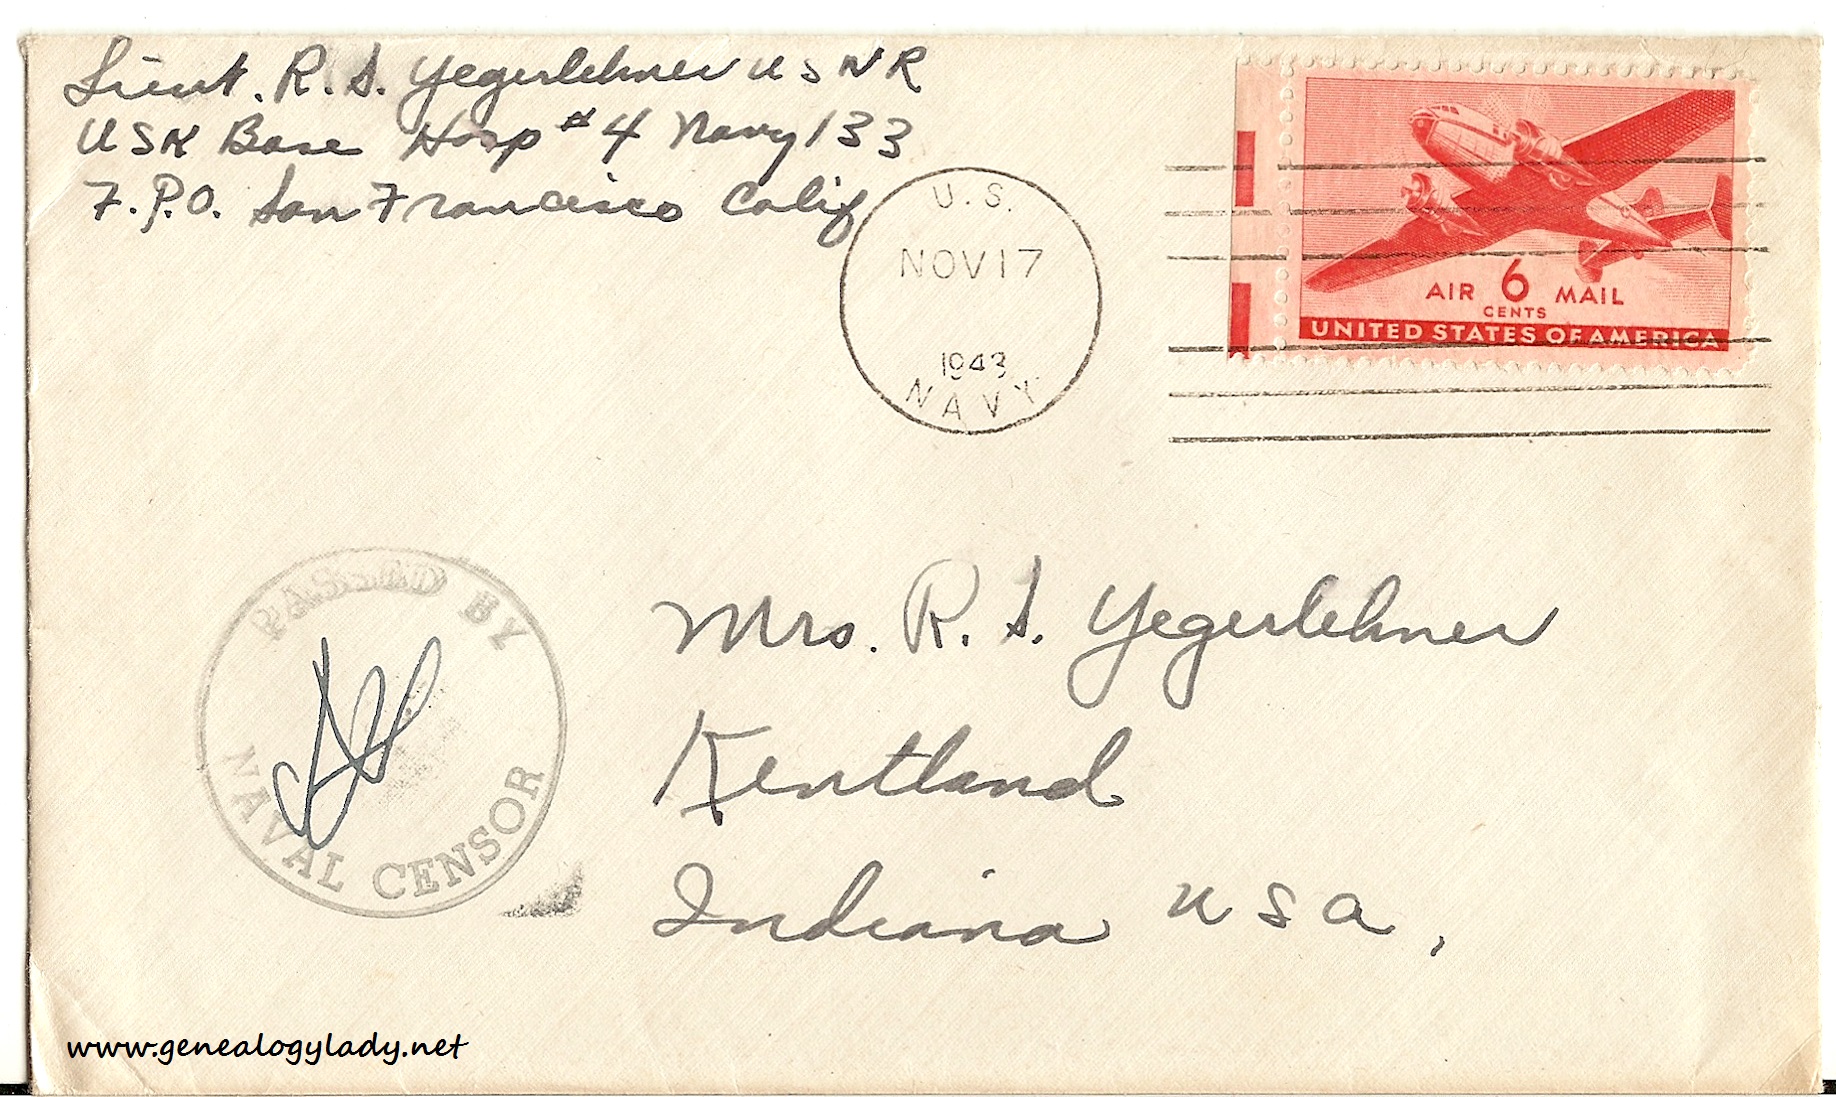 Lieut. R. S. Yegerlehner USNR
USN Base Hosp #4 Navy 133
F.P.O. San Francisco Calif
U.S.
NOV 17
1943
NAVY
AIR 6 MAIL
CENTS
UNITED STATES OF AMERICA
PASSED BY
NAVAL CENSOR
Mrs. R. S. Yegerlehner
Kentland
Indiana USA,
www.genealogylady.net